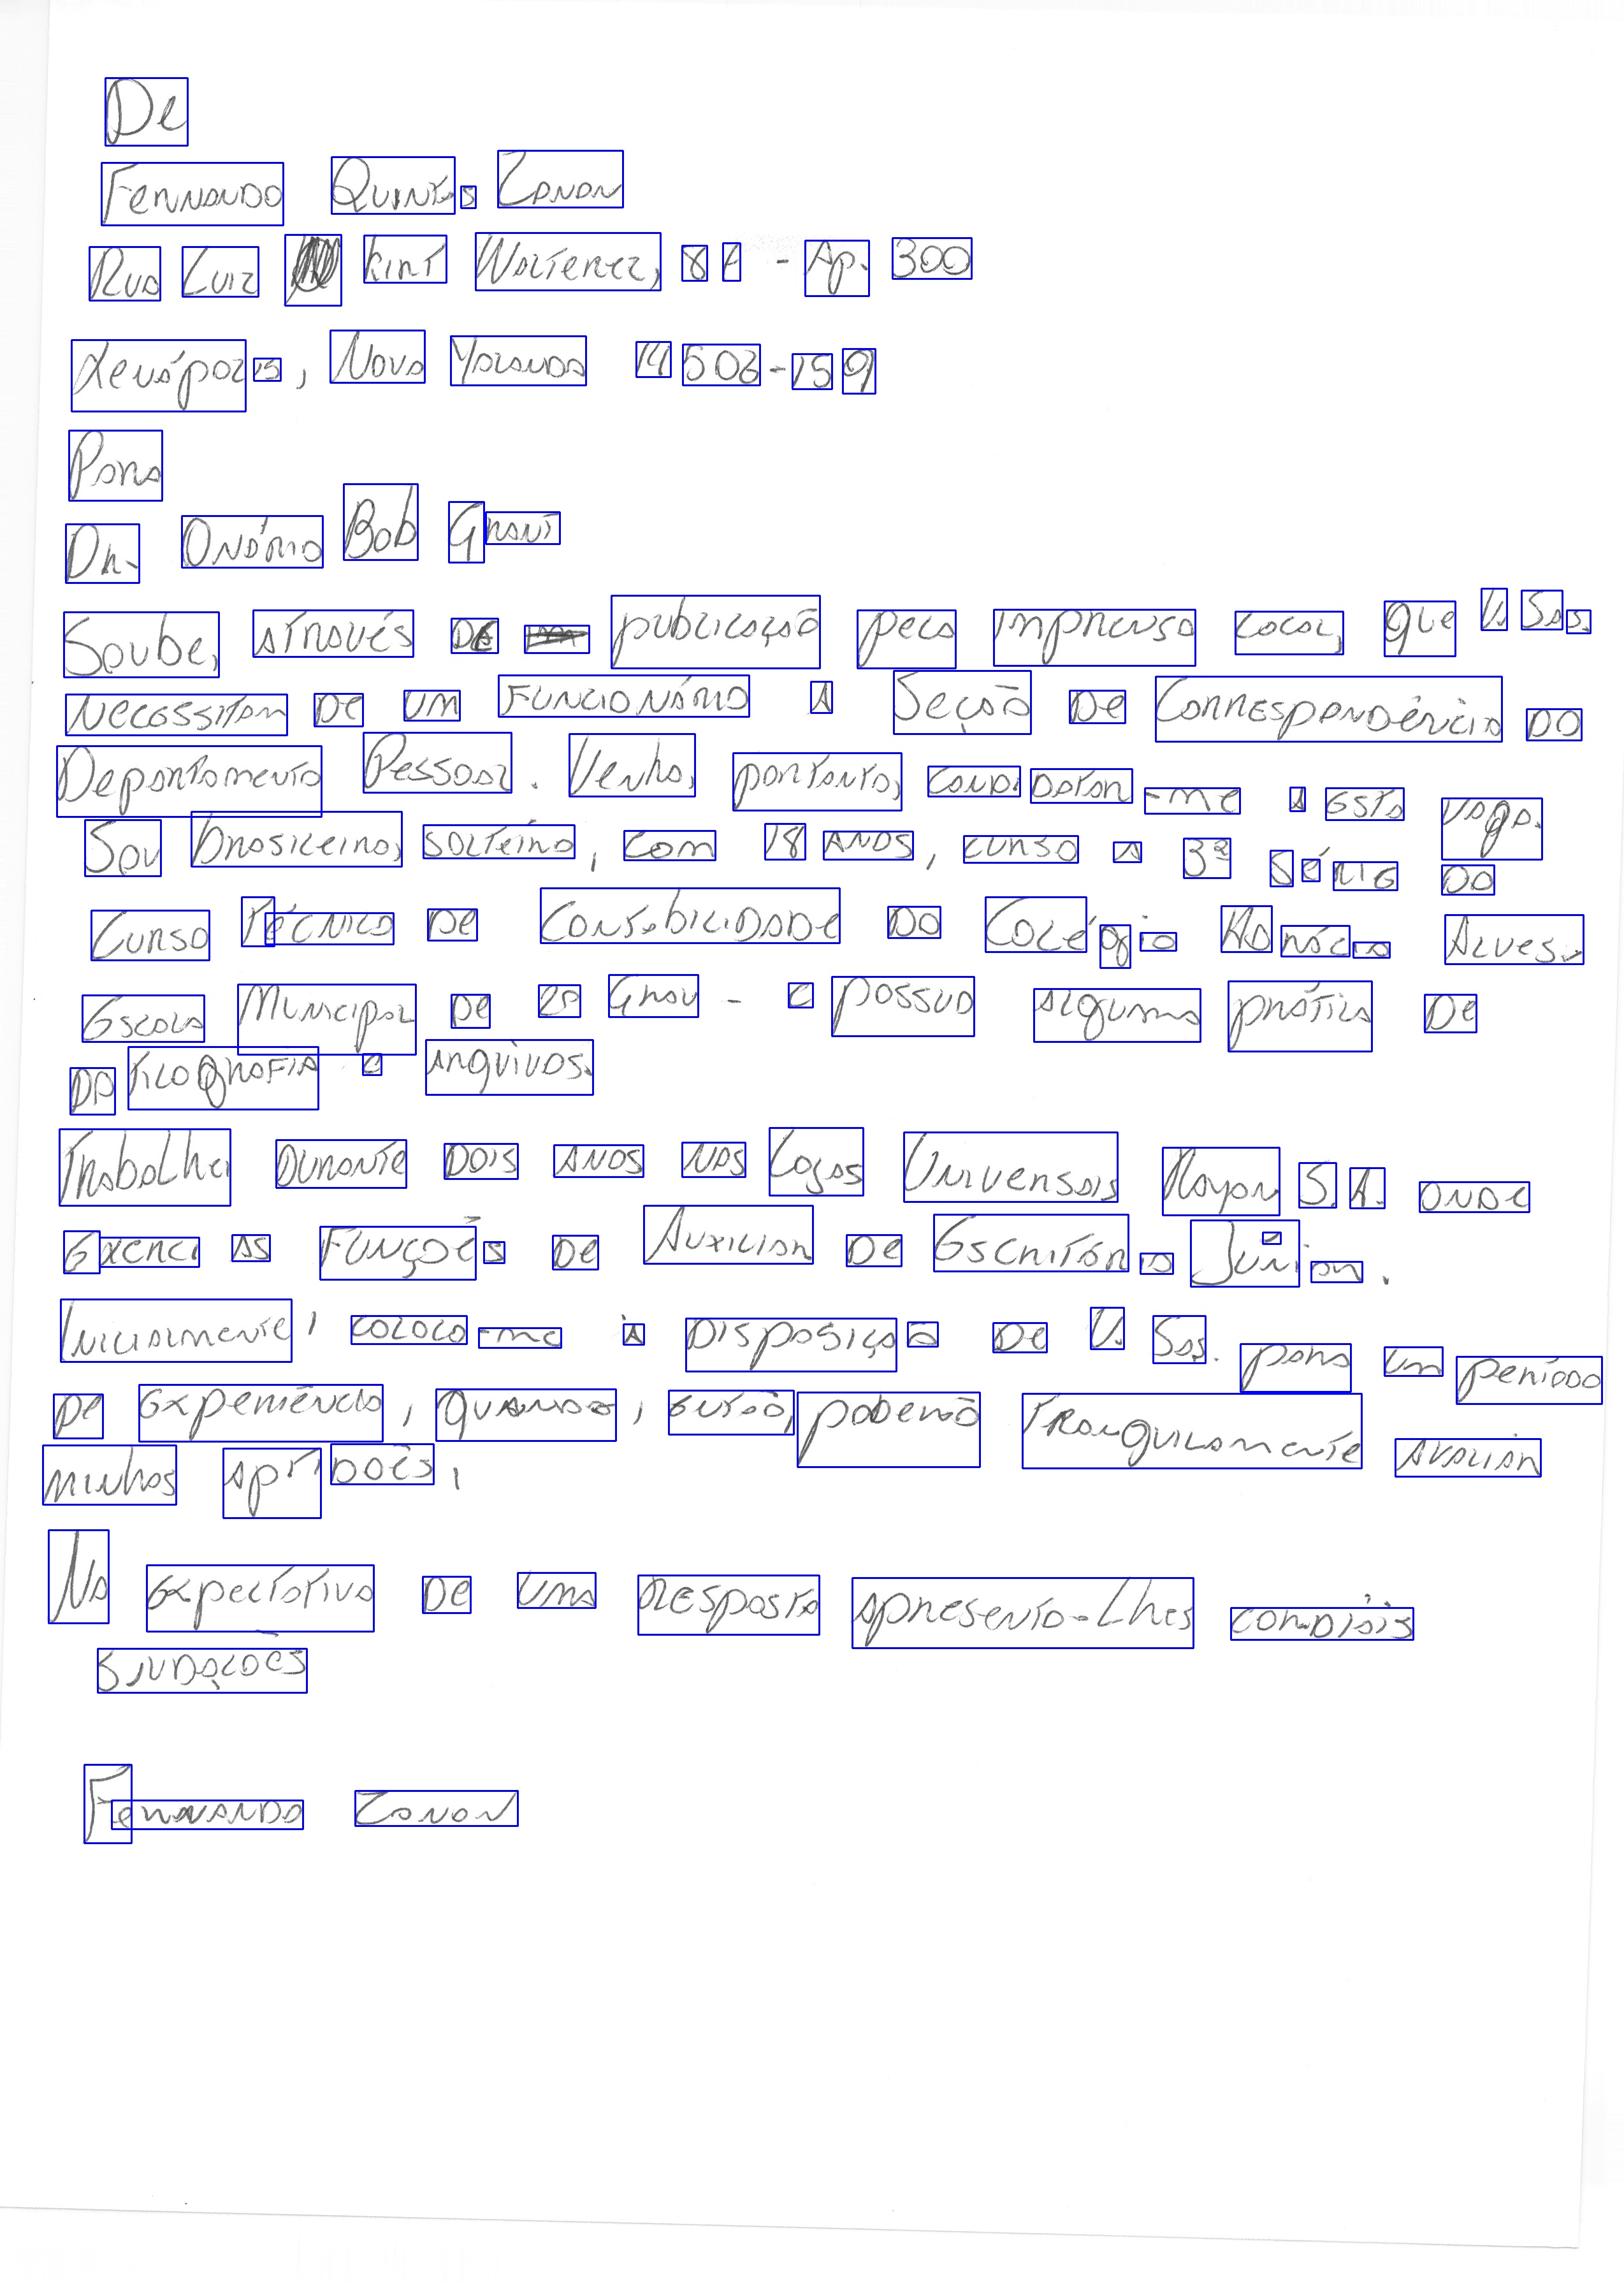 De
Fernando Quintas Zanon
Rua Luiz Kint Walterez, 87 - Ap. 300
Xenápolis, Nova Yolanda 14502-159
Para
Dr. Onório Bob Grant
Soube, através de publicação pela imprensa local, que V. Sas.
necessitam de um funcionário à Seção de Correspondência do
Departamento Pessoal. Venho, portanto, candidatar-me a esta vaga.
Sou brasileiro, solteiro, com 18 anos, curso a 3ª série do
Curso Técnico de Contabilidade do Colégio Honácio Alves.
Escola Municipal de 2º Grau - e possuo alguma prática de
datilografia e arquivos.
Trabalhei durante dois anos nas Lojas Universais Rayon S.A. onde
exerci as funções de Auxiliar de Escritório Júnior.
Inicialmente, coloco-me à disposição de V. Sas. para um período
de experiência, quando, então, poderão tranquilamente avaliar
minhas aptidões.
Na expectativa de uma resposta apresento-lhes cordiais
saudações
Fernando Zanon